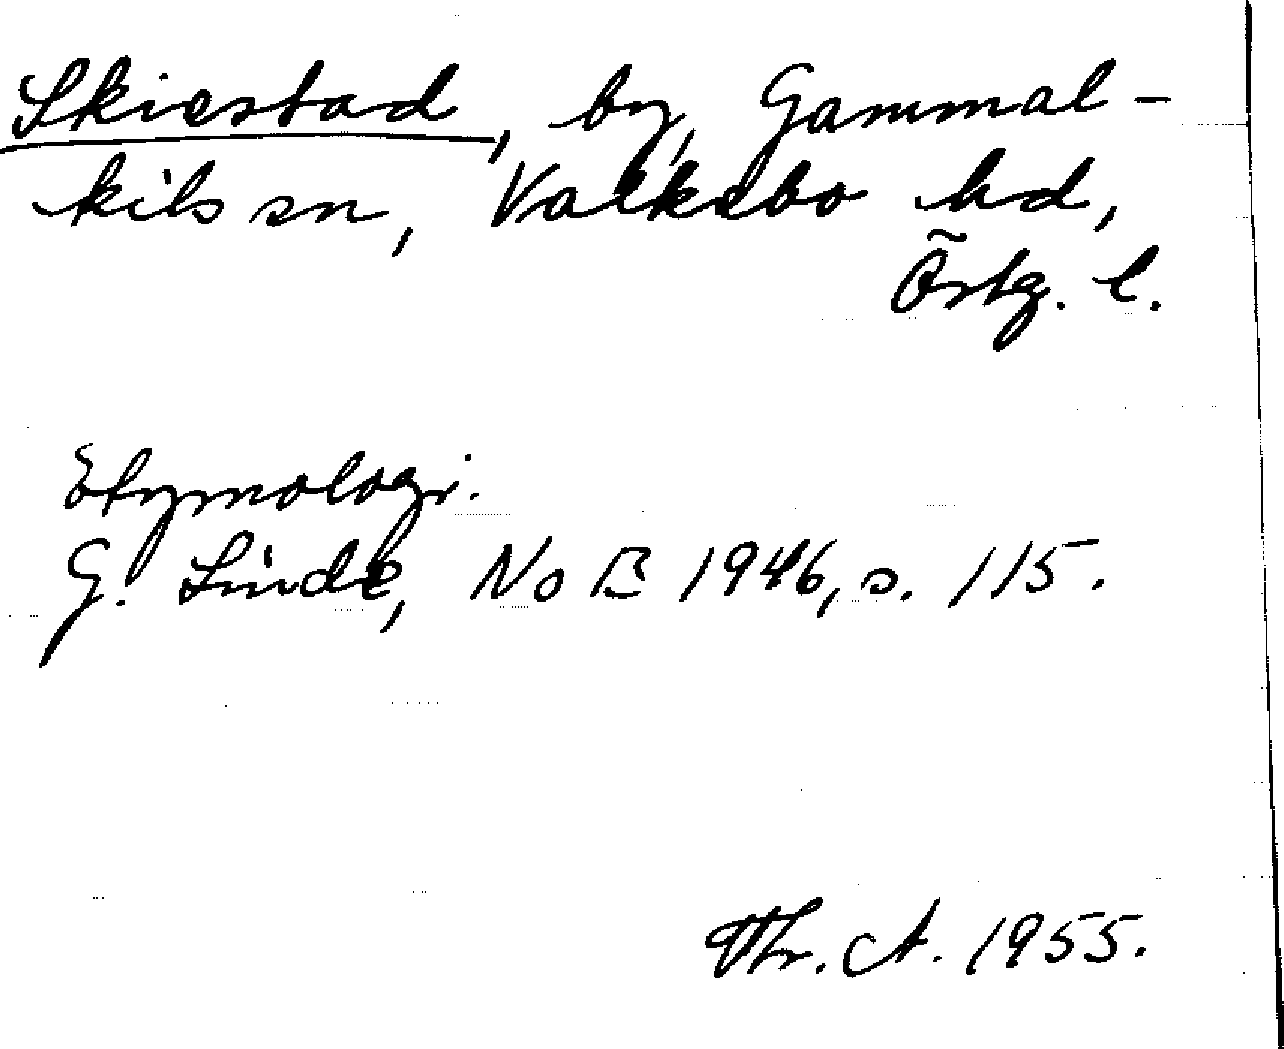 Skiestad, by, Gammal-
kils sn, Valkebo hd,
Östg. l.
Etymologi.
G. Linde, NoB 1946, s. 115.
Thr. A. 1955.